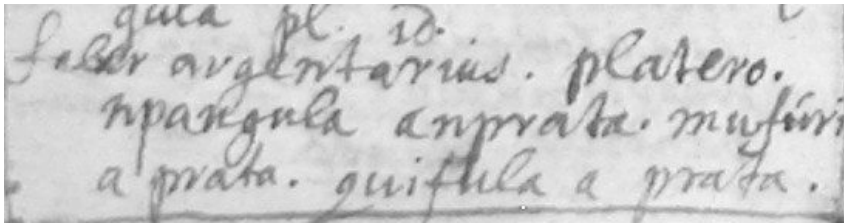 gula pl. id.
faber argentarius. platero.
npangula anprata. mufúri
a prata. guifula a prata.